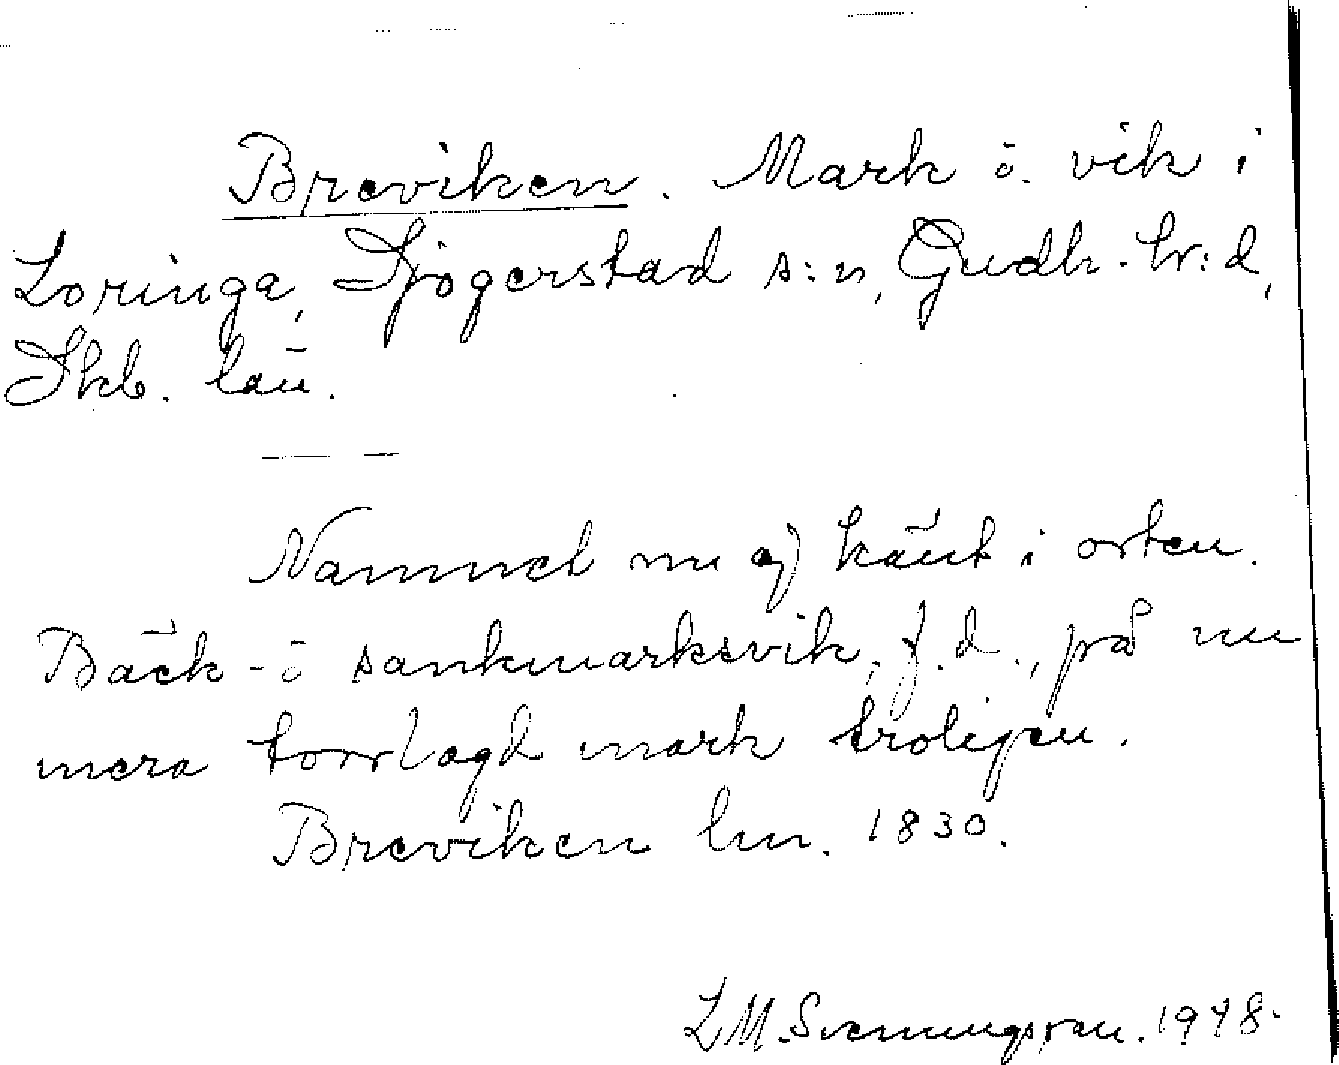 Breviken. Mark ö. vik i
Loringa, Sjogerstad s:n, Gudh. hr:d,
Skb. län.
Namnet nu ej känt i orten.
Bäck- ö sankmarksvik, f.d., på nu
mera torrlagd mark troligen.
Breviken lm. 1830.
LM. Svenungsson. 1948.